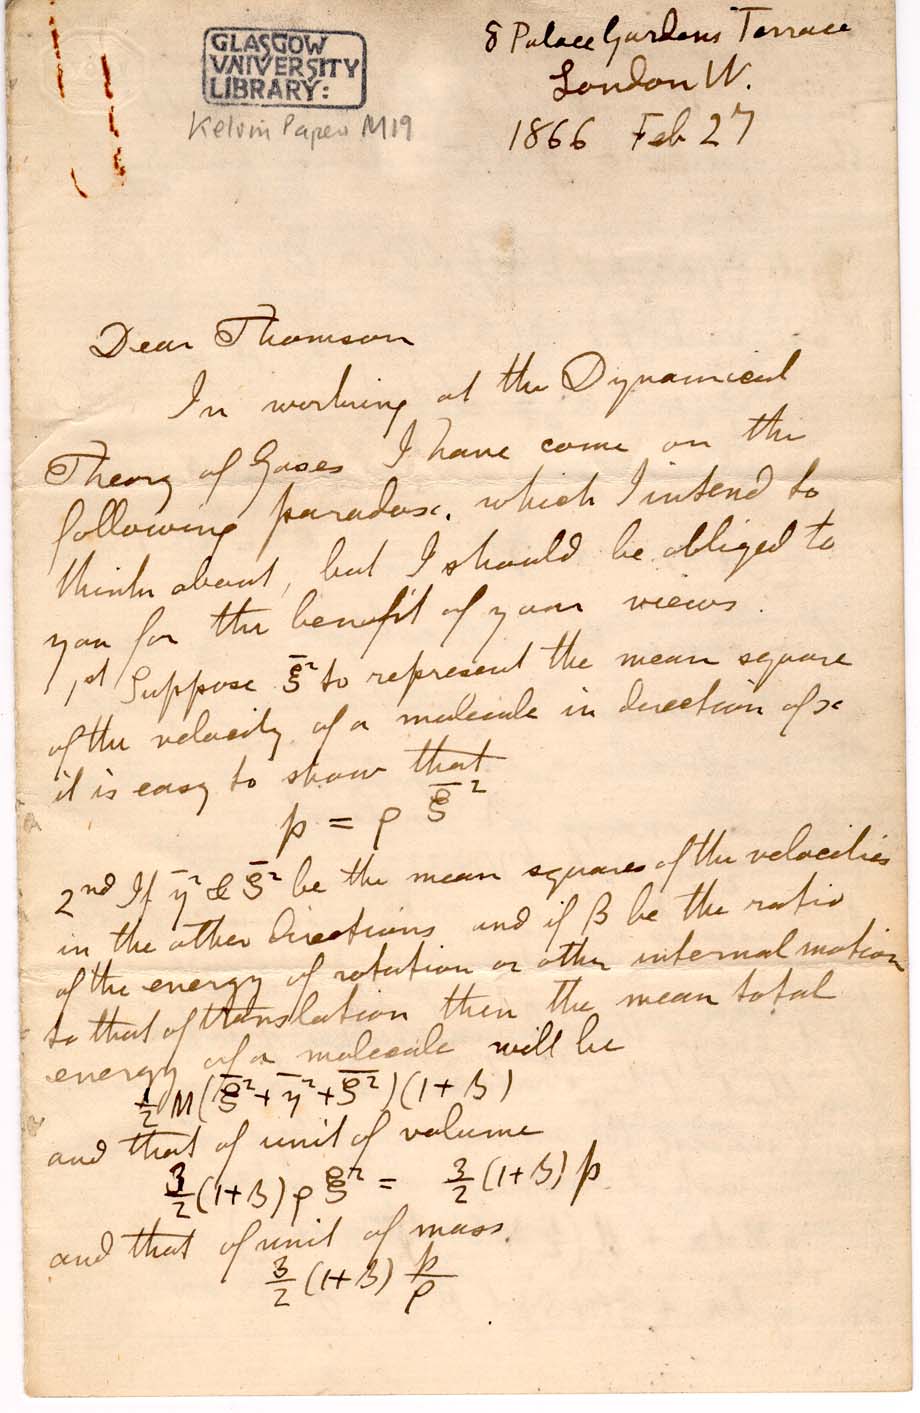 GLASGOW
UNIVERSITY
LIBRARY:
Kelvin Papers M19
8 Palace Gardens Terrace
London W.
1866 Feb 27
Dear Thomson
In working at the Dynamical
Theory of Gases I have come on the
following paradox. which I intend to
think about, but I should be obliged to
you for the benefit of your views.
1st Suppose ξ̄² to represent the mean square
of the velocity of a molecule in direction of x
it is easy to show that
p = ρ ξ̄²
2nd If η̄² & ζ̄² be the mean squares of the velocities
in the other directions and if β be the ratio
of the energy of rotation or other internal motion
to that of translation then the mean total
energy of a molecule will be
½ M (ξ̄² + η̄² + ζ̄²)(1 + β)
and that of unit of volume
3/2 (1+β) ρ ξ² = 3/2 (1+β) p
and that of unit of mass.
3/2 (1+β) p/ρ